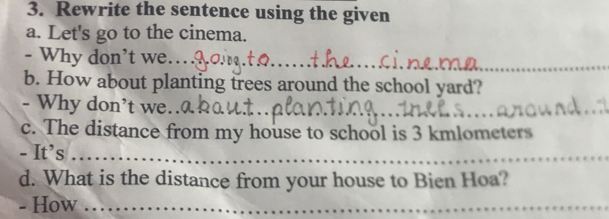 3. Rewrite the sentence using the given
a. Let's go to the cinema.
- Why don't we....going.to......the....cinema................
b. How about planting trees around the school yard?
- Why don't we..about..planting...trees.....around...
c. The distance from my house to school is 3 kmlometers
- It's ................................................................
d. What is the distance from your house to Bien Hoa?
- How ................................................................